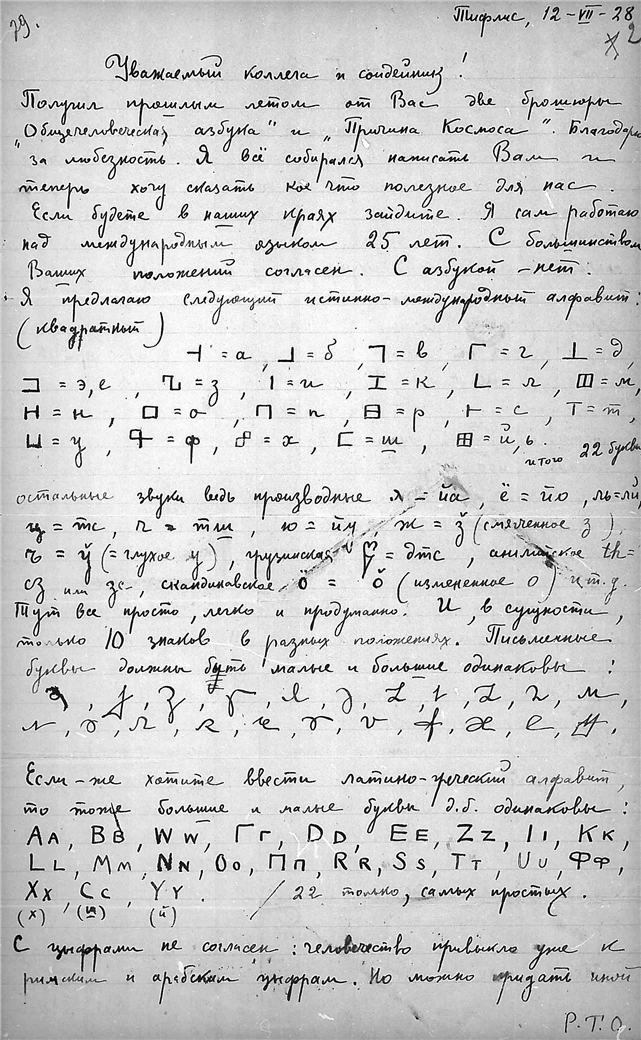 79.
Тифлис, 12-VII-28
2
Уважаемый коллега и соидейник!
Получил прошлым летом от Вас две брошюры
„Общечеловеческая азбука" и „Причина Космоса". Благодарю
за любезность. Я всё собирался написать Вам и
теперь хочу сказать кое что полезное для нас.
Если будете в наших краях зайдите. Я сам работаю
над международным языком 25 лет. С большинством
Ваших положений согласен. С азбукой - нет.
Я предлагаю следующий истинно-международный алфавит:
(квадратный)
= а, = б, = в, = г, = д,
= э,е, = з, = и, = к, = л, = м,
= н, = о, = п, = р, = с, = т,
= у, = ф, = х, = ш, = й,ь.
итого 22 буквы
остальные звуки ведь производные я = йа, ё = йо, ль=лй,
ц = тс, ч = тш, ю = йу, ж = з̆ (смягченное з),
ъ = ў (= глухое у), грузинская = дтс, английское th=
сз или зс, скандинавское ö = о̆ (измененное о) и т.д.
Тут все просто, легко и продуманно. И, в сущности,
только 10 знаков в разных положениях. Письменные
буквы должны быть малые и большие одинаковы:
Если-же хотите ввести латино-греческий алфавит,
то тоже большие и малые буквы д.б. одинаковы:
Aᴀ, Bʙ, Wᴡ, Гг, Dᴅ, Eᴇ, Zᴢ, Iı, Kᴋ,
Lʟ, Mᴍ, Nɴ, Oo, Пп, Rʀ, Ss, Tᴛ, Uᴜ, Фф,
Xx, Cc, Yʏ. / 22 только, самых простых.
(х) (ш) (й)
С цыфрами не согласен: человечество привыкло уже к
римским и арабским цыфрам. Но можно придать иной
P.T.O.